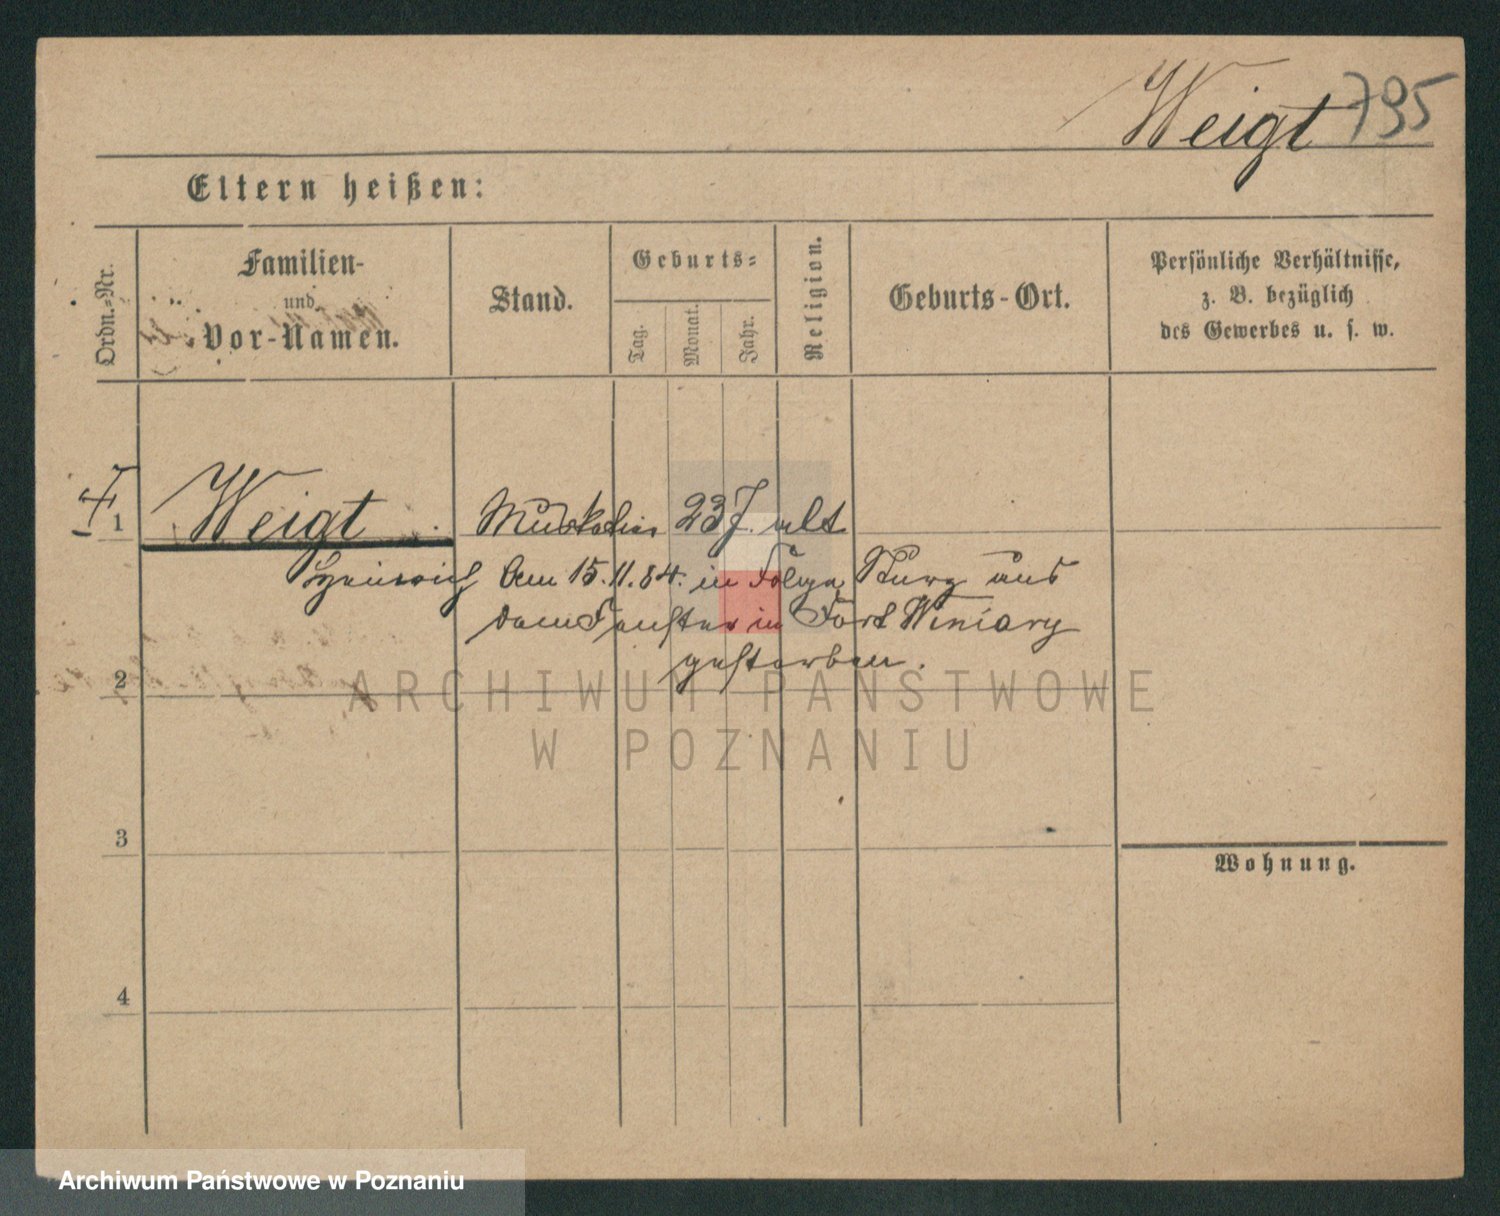 Weigt 795
Eltern heißen:
Ordn.-Nr.
Familien-
und
Vor-Namen.
Stand.
Geburts-
Tag.
Monat.
Jahr.
Religion.
Geburts-Ort.
Persönliche Verhältnisse,
z. B. bezüglich
des Gewerbes u. s. w.
1 Weigt Musketier 23 J. alt
Heinrich Am 15.11.84. in Folge Sturz aus
dem Fenster in Fort Winiary
gestorben.
2
3
Wohnung.
4
ARCHIWUM PAŃSTWOWE
W POZNANIU
Archiwum Państwowe w Poznaniu